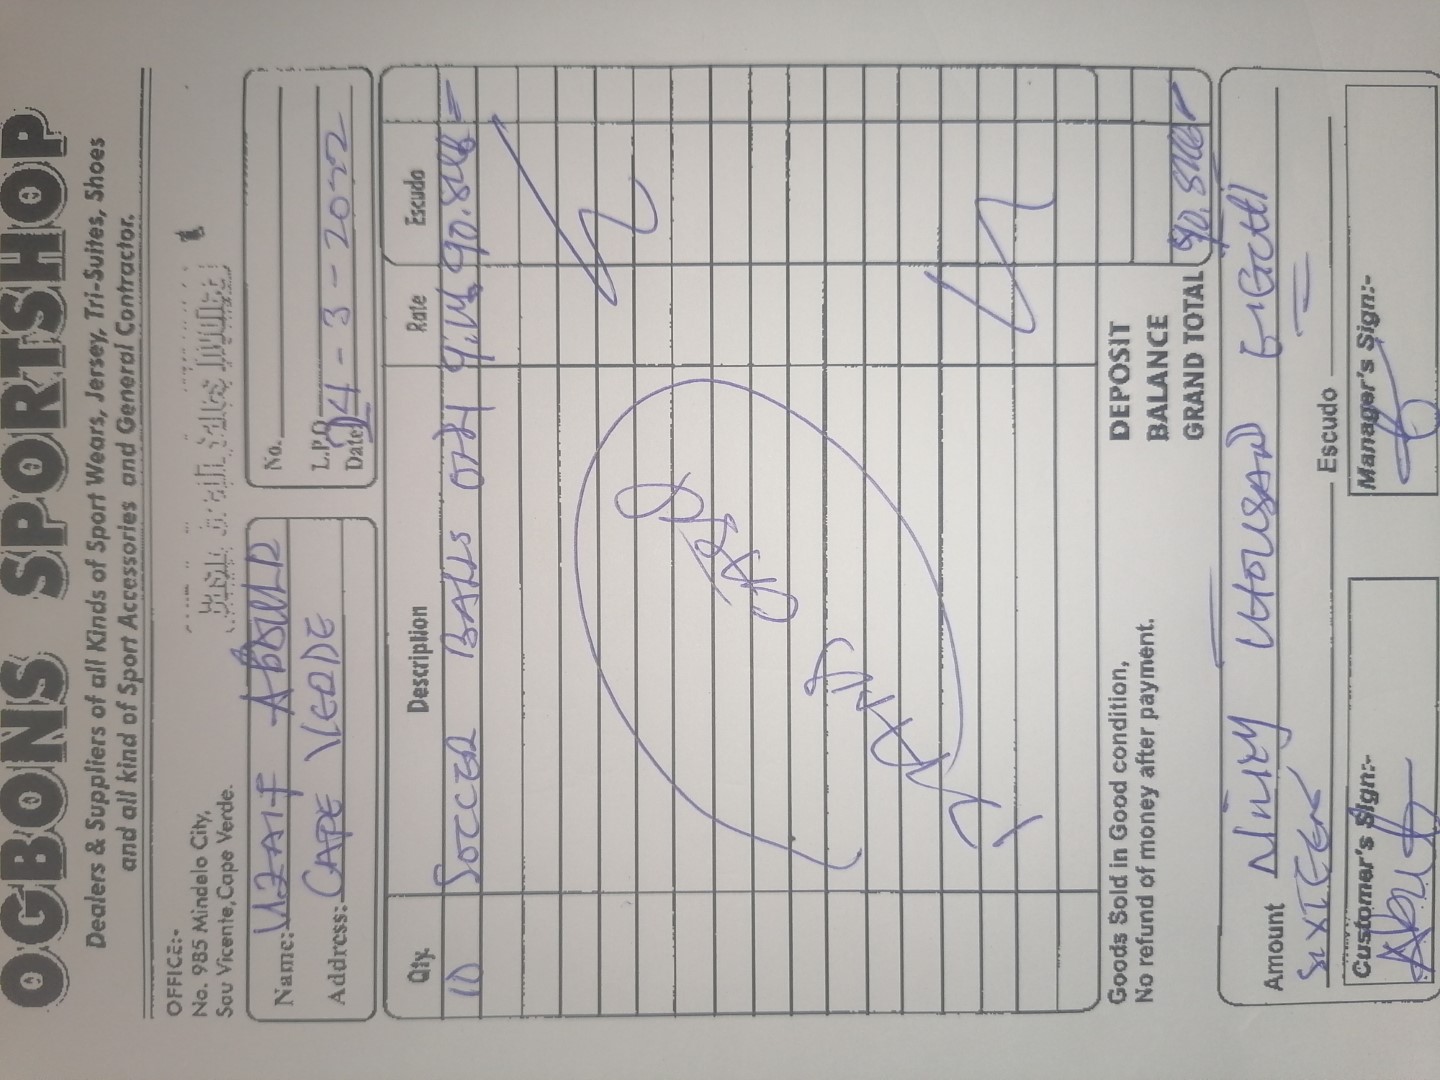 OGBONS SPORTSHOP
Dealers & Suppliers of all Kinds of Sport Wears, Jersey, Tri-Suites, Shoes
and all kind of Sport Accessories and General Contractor.
OFFICE:-
No. 985 Mindelo City,
Sau Vicente, Cape Verde.
Name: UZAIF ABDULD
Address: CAPE VERDE
No.
L.P.O
Date 04-3-2022
Qty. Description Rate Escudo
10 SOCCER BALLS
DEPOSIT
BALANCE
GRAND TOTAL
Goods Sold in Good condition,
No refund of money after payment.
Amount NINTY THOUSAND EIGHT
SIXTEEN Escudo
Customer's Sign:-
Manager's Sign:-